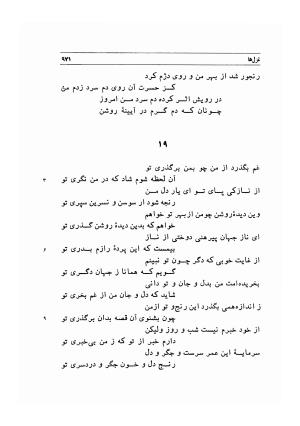 غزل‌ها ۹۷۱
رنجور شد از بهر من و روی دژم کرد
کز حسرت آن روی دم سرد زدم من
در رویش اثر کرده دم سرد من امروز
چونان که دم گرم در آیینهٔ روشن
۱۹
غم بگذرد از من چو بمن برگذری تو
۳ آن لحظه شوم شاد که در من نگری تو
از نازکی پای تو ای یار دل من
رنجه شود ار سوسن و نسرین سپری تو
وین دیدهٔ روشن چومن ازبهر تو خواهم
کو دیده بدین دیدهٔ روشن گذری تو
ای ناز جهان پیرهنی دوختی از ناز
۶ بیمست که این پردهٔ رازم بدری تو
از غایت خوبی که دگر چون تو نبینم
گویم که همانا ز جهان دگری تو
بخریدمت من بدل و جان و تو دانی
شاید که دل و جان من از غم بخری تو
ز اندازه‌همی بگذرد این رنج‌و تو ازمن
۹ چون بشنوی آن قصه بدان برگذری تو
از خود خبرم نیست شب و روز ولیکن
دارم خبر از تو که ز من بی‌خبری تو
سرمایهٔ این عمر سرست و جگر و دل
رنج دل و خون جگر و دردسری تو